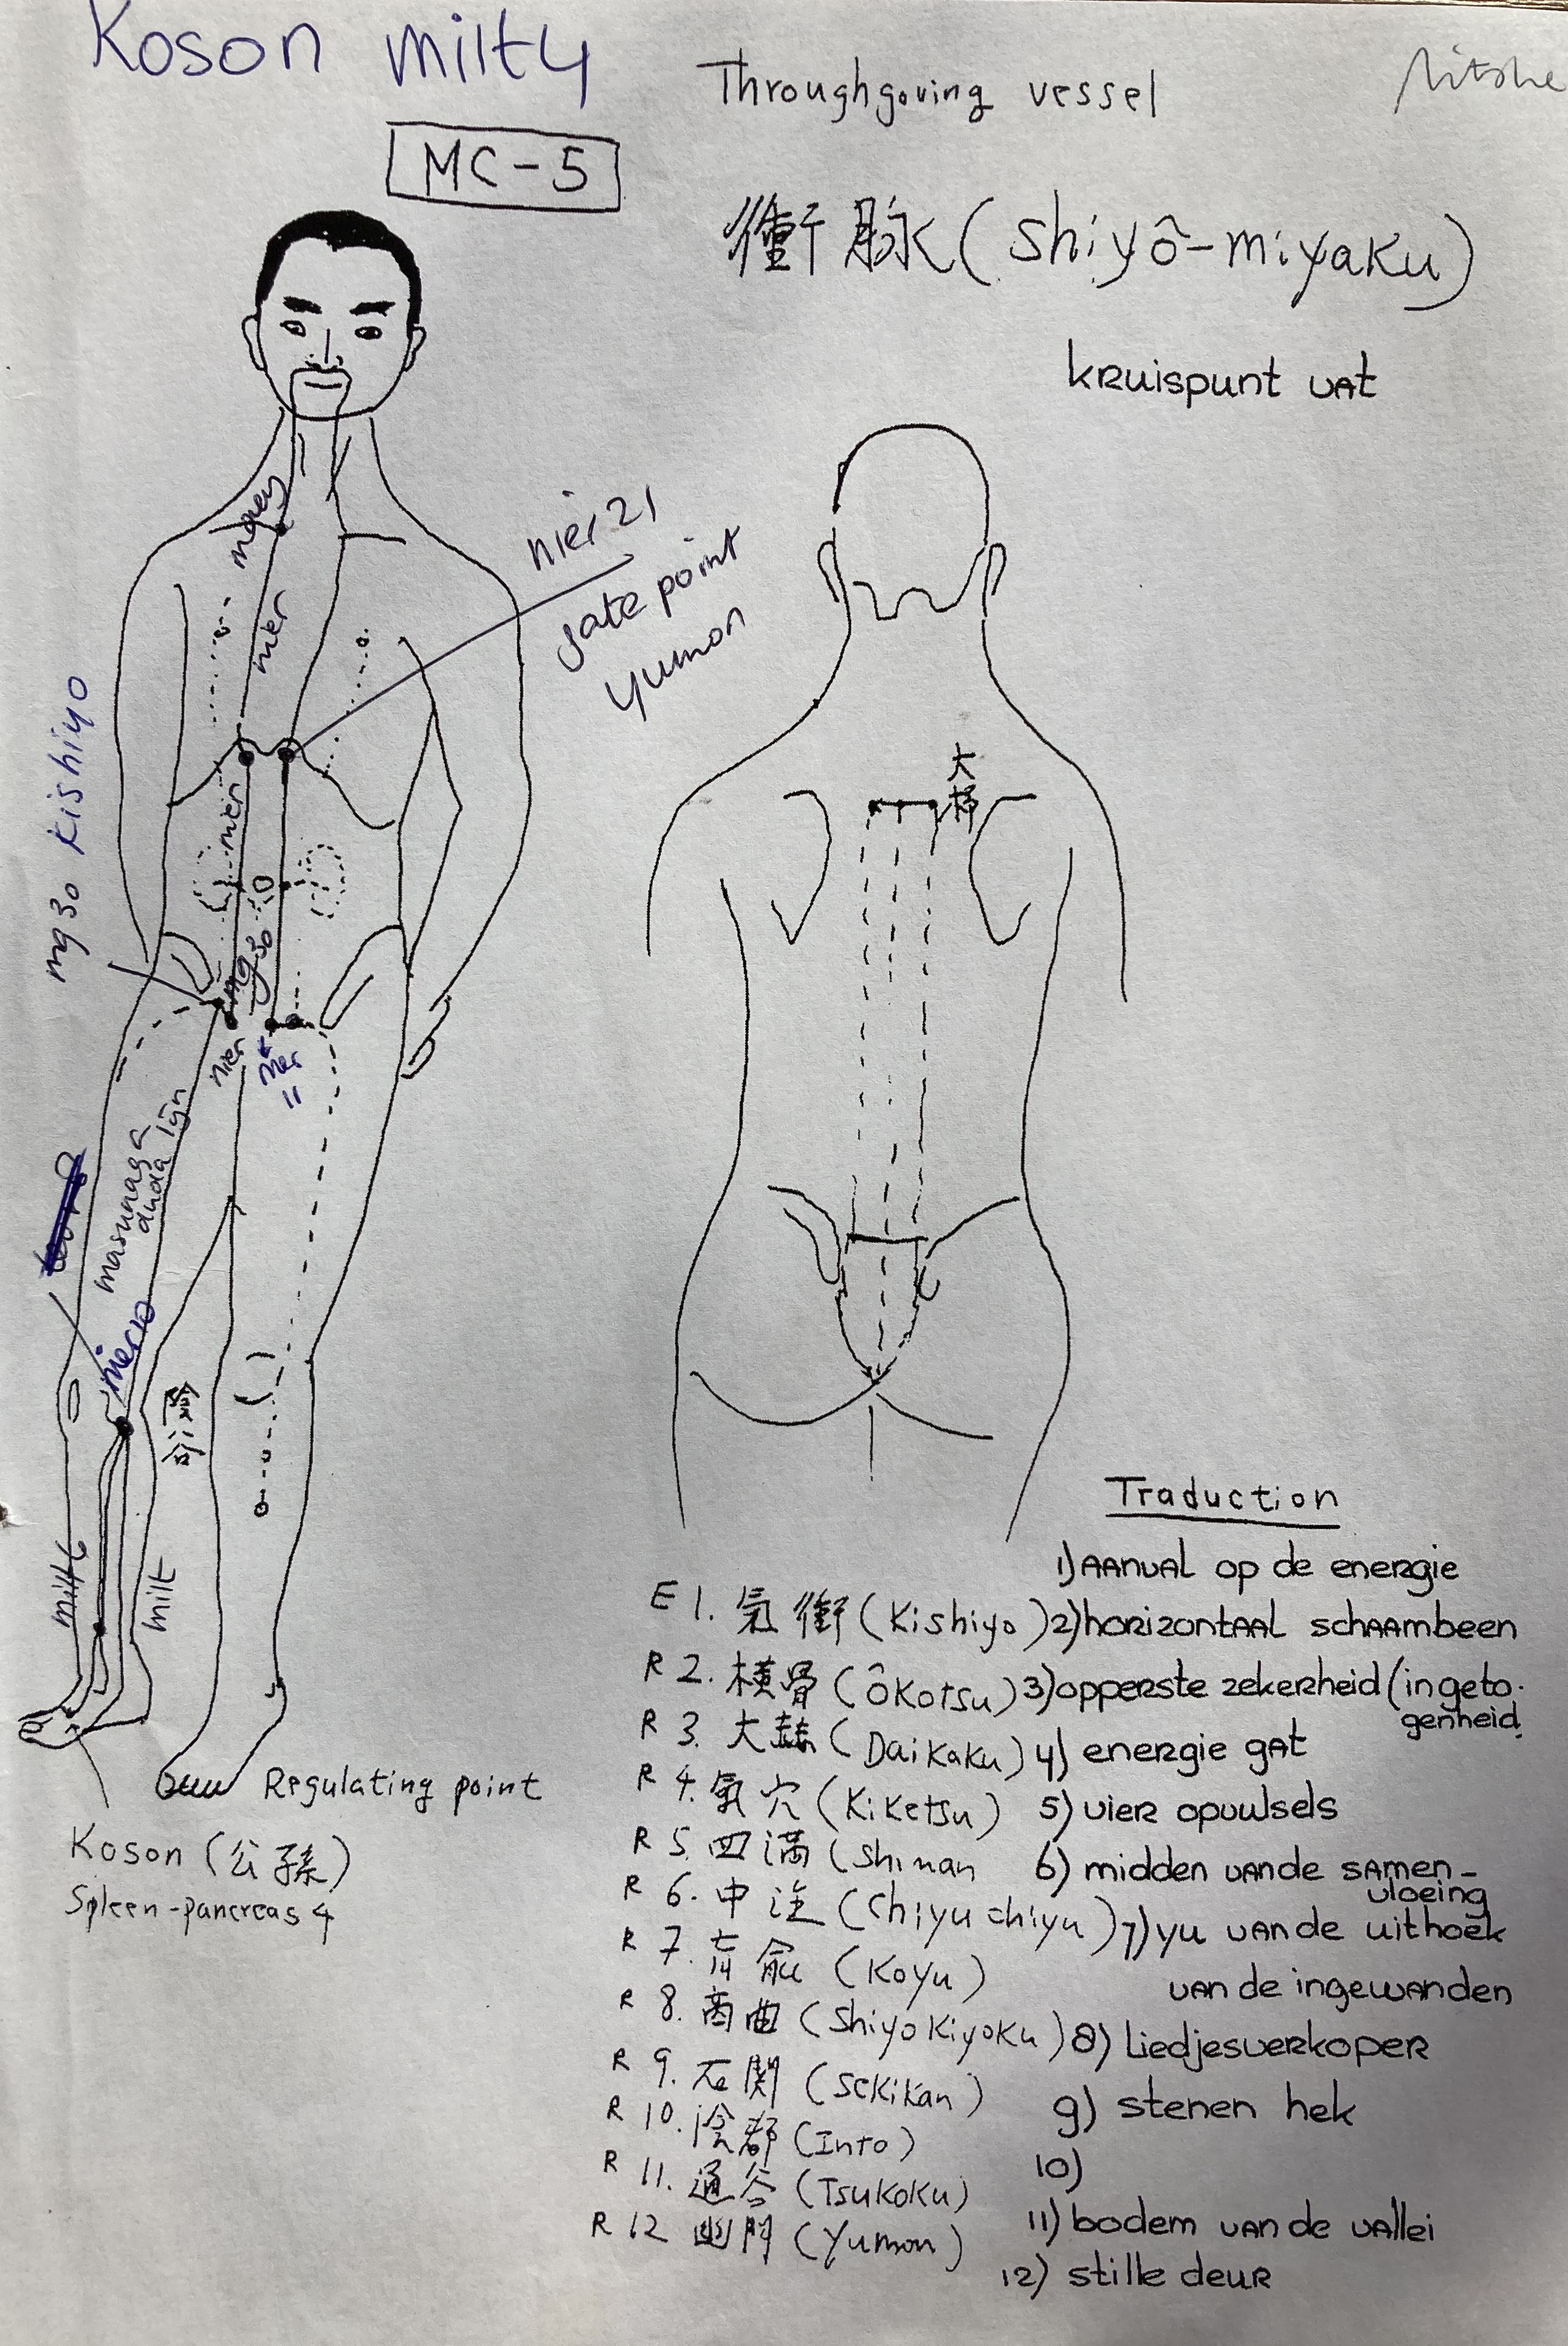 Koson milt4
Throughgoing vessel
MC-5
衝脉 (shiyô-miyaku)
kruispunt vat
nier 21
gate point
yumon
nier
mg 30 Kishiyo
nier
mg 30
nier
nier
11
masunaga
lijn
nier10
陰谷
milt
milt
大
杼
Regulating point
Koson (公孫)
Spleen-pancreas 4
Traduction
E 1. 氣衝 (Kishiyo)
R 2. 横骨 (ôKotsu)
R 3. 大赫 (Daikaku)
R 4. 氣穴 (Kiketsu)
R 5. 四満 (Shiman
R 6. 中注 (Chiyuchiyu)
R 7. 肓兪 (Koyu)
R 8. 商曲 (Shiyokiyoku)
R 9. 石関 (Sekikan)
R 10. 陰都 (Into)
R 11. 通谷 (Tsukoku)
R 12 幽門 (Yumon)
1) aanval op de energie
2) horizontaal schaambeen
3) opperste zekerheid (ingeto.
genheid.
4) energie gat
5) vier opvulsels
6) midden vande samen-
vloeing
7) yu van de uithoek
van de ingewanden
8) liedjesverkoper
9) stenen hek
10)
11) bodem van de vallei
12) stille deur